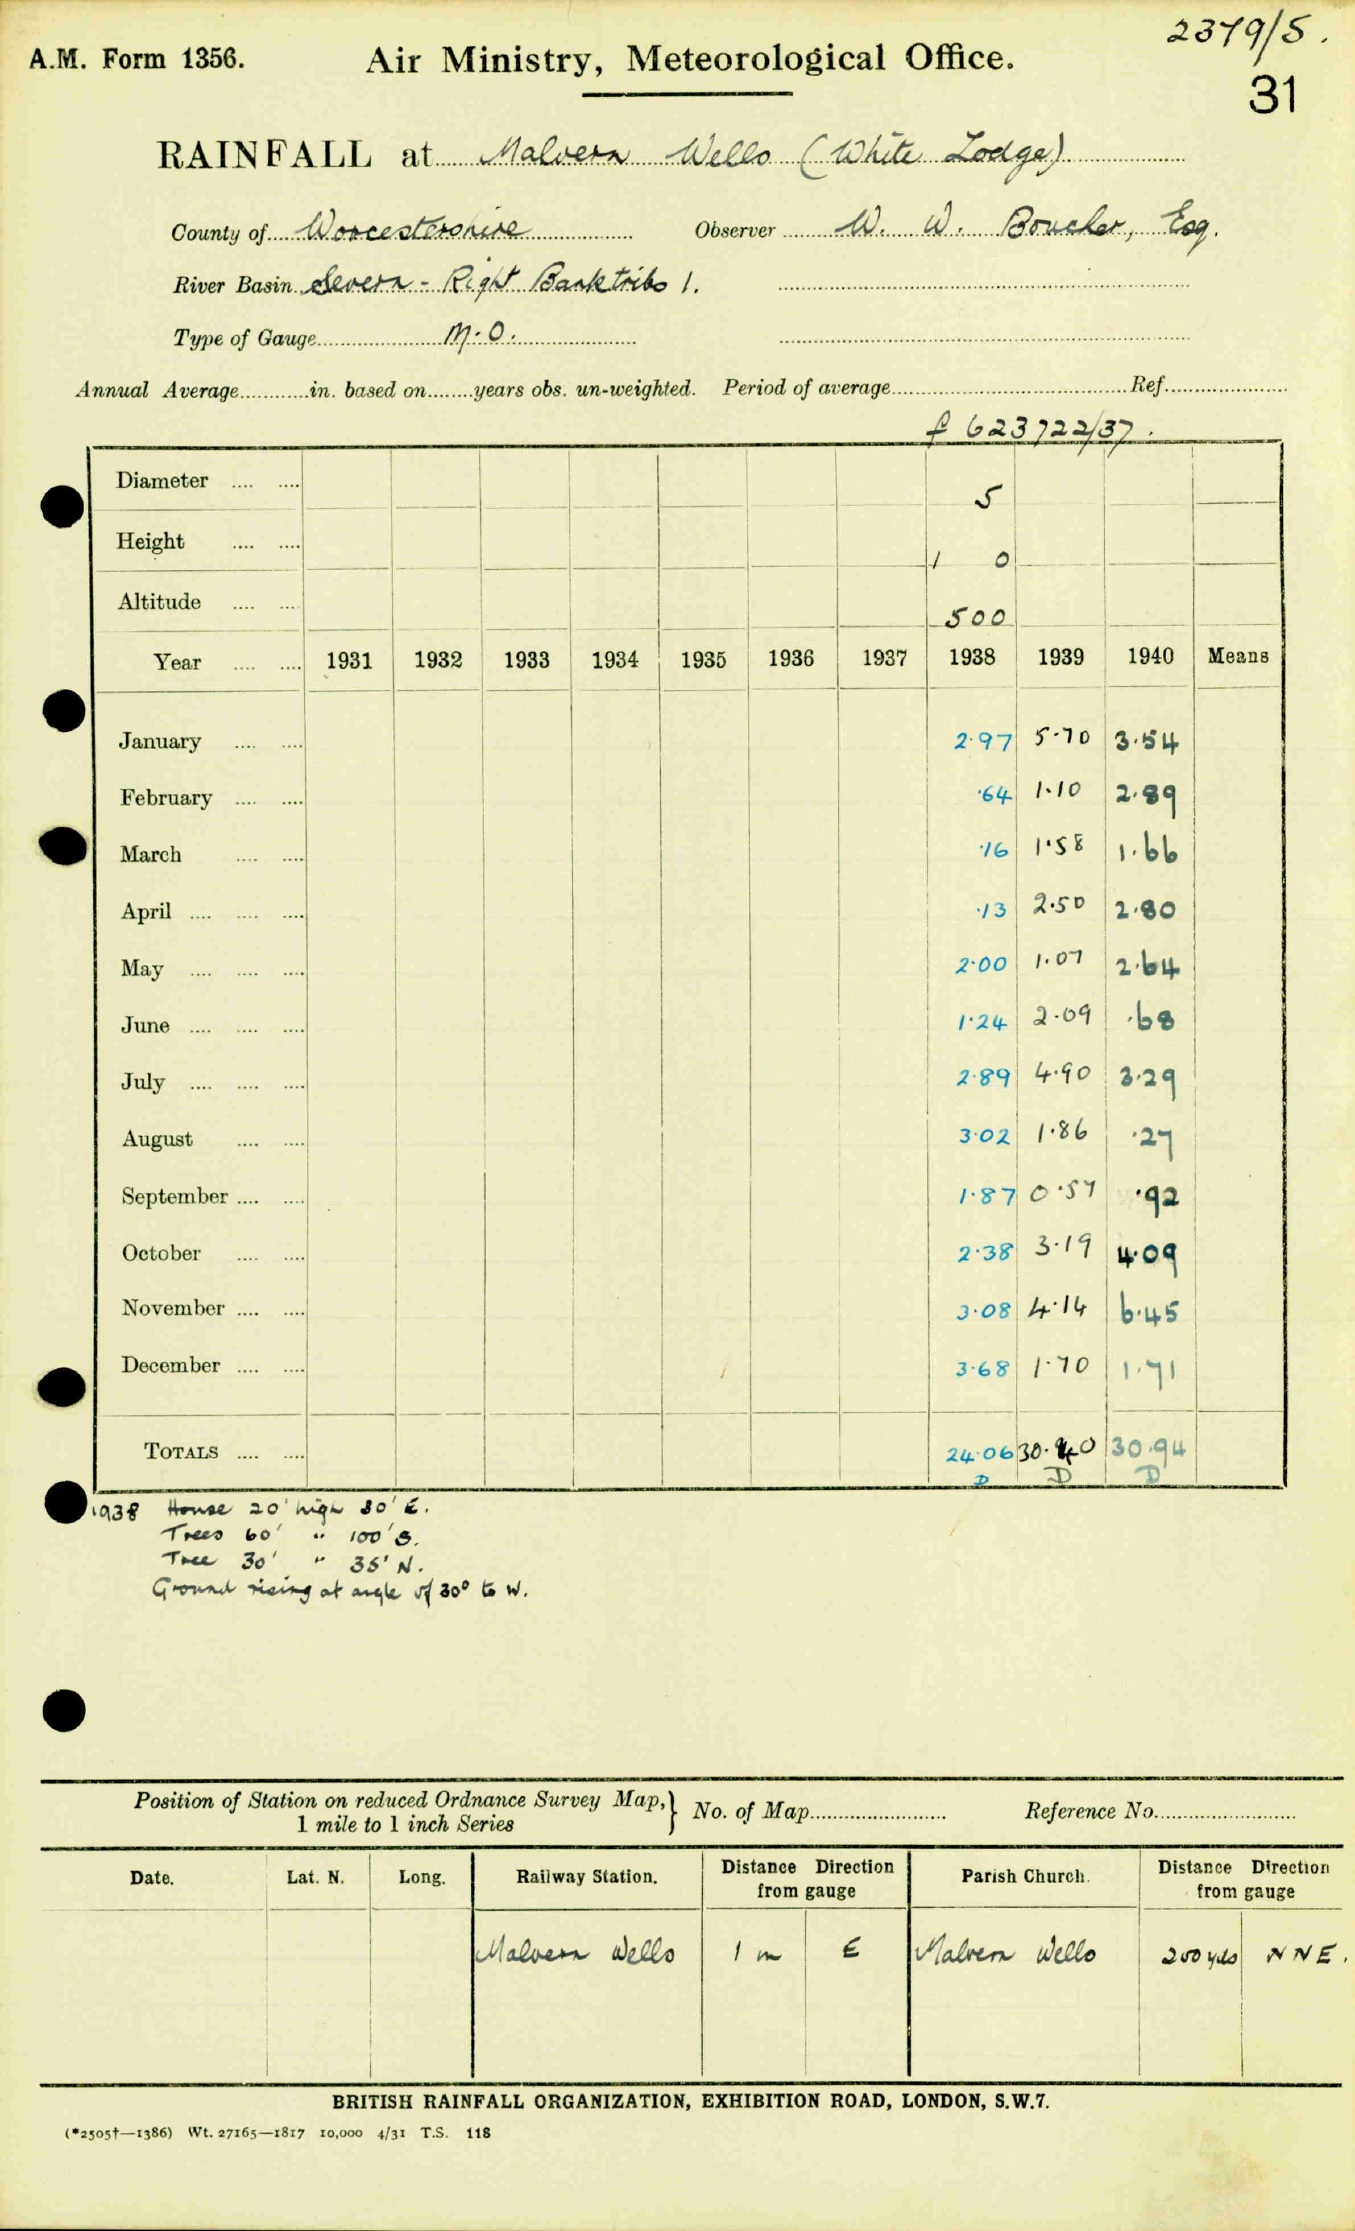 2379/5.
A.M. Form 1356. Air Ministry, Meteorological Office.
31
RAINFALL at Malvern Wells (White Lodge)
County of Worcestershire Observer W. W. Boucher, Esq.
River Basin Severn - Right Bank tribs 1.
Type of Gauge M.O.
Annual Average in. based on years obs. un-weighted. Period of average Ref.
f 623722/37.
Diameter 5
Height 1 0
Altitude 500
Year 1931 1932 1933 1934 1935 1936 1937 1938 1939 1940 Means
January 2.97 5.70 3.54
February .64 1.10 2.89
March .16 1.58 1.66
April .13 2.50 2.80
May 2.00 1.07 2.64
June 1.24 2.09 .68
July 2.89 4.90 3.29
August 3.02 1.86 .27
September 1.87 0.57 .92
October 2.38 3.19 4.09
November 3.08 4.14 6.45
December 3.68 1.70 1.71
TOTALS 24.06 30.40 30.94
D D D
1938 House 20' high 30' E.
Trees 60' " 100' S.
Tree 30' " 35' N.
Ground rising at angle of 30° to W.
Position of Station on reduced Ordnance Survey Map,} No. of Map Reference No.
1 mile to 1 inch Series
Date. Lat. N. Long. Railway Station. Distance Direction from gauge Parish Church. Distance Direction from gauge
Malvern Wells 1 m E Malvern Wells 200 yds NNE.
BRITISH RAINFALL ORGANIZATION, EXHIBITION ROAD, LONDON, S.W.7.
(*2505†—1386) Wt. 27165—1817 10,000 4/31 T.S. 118